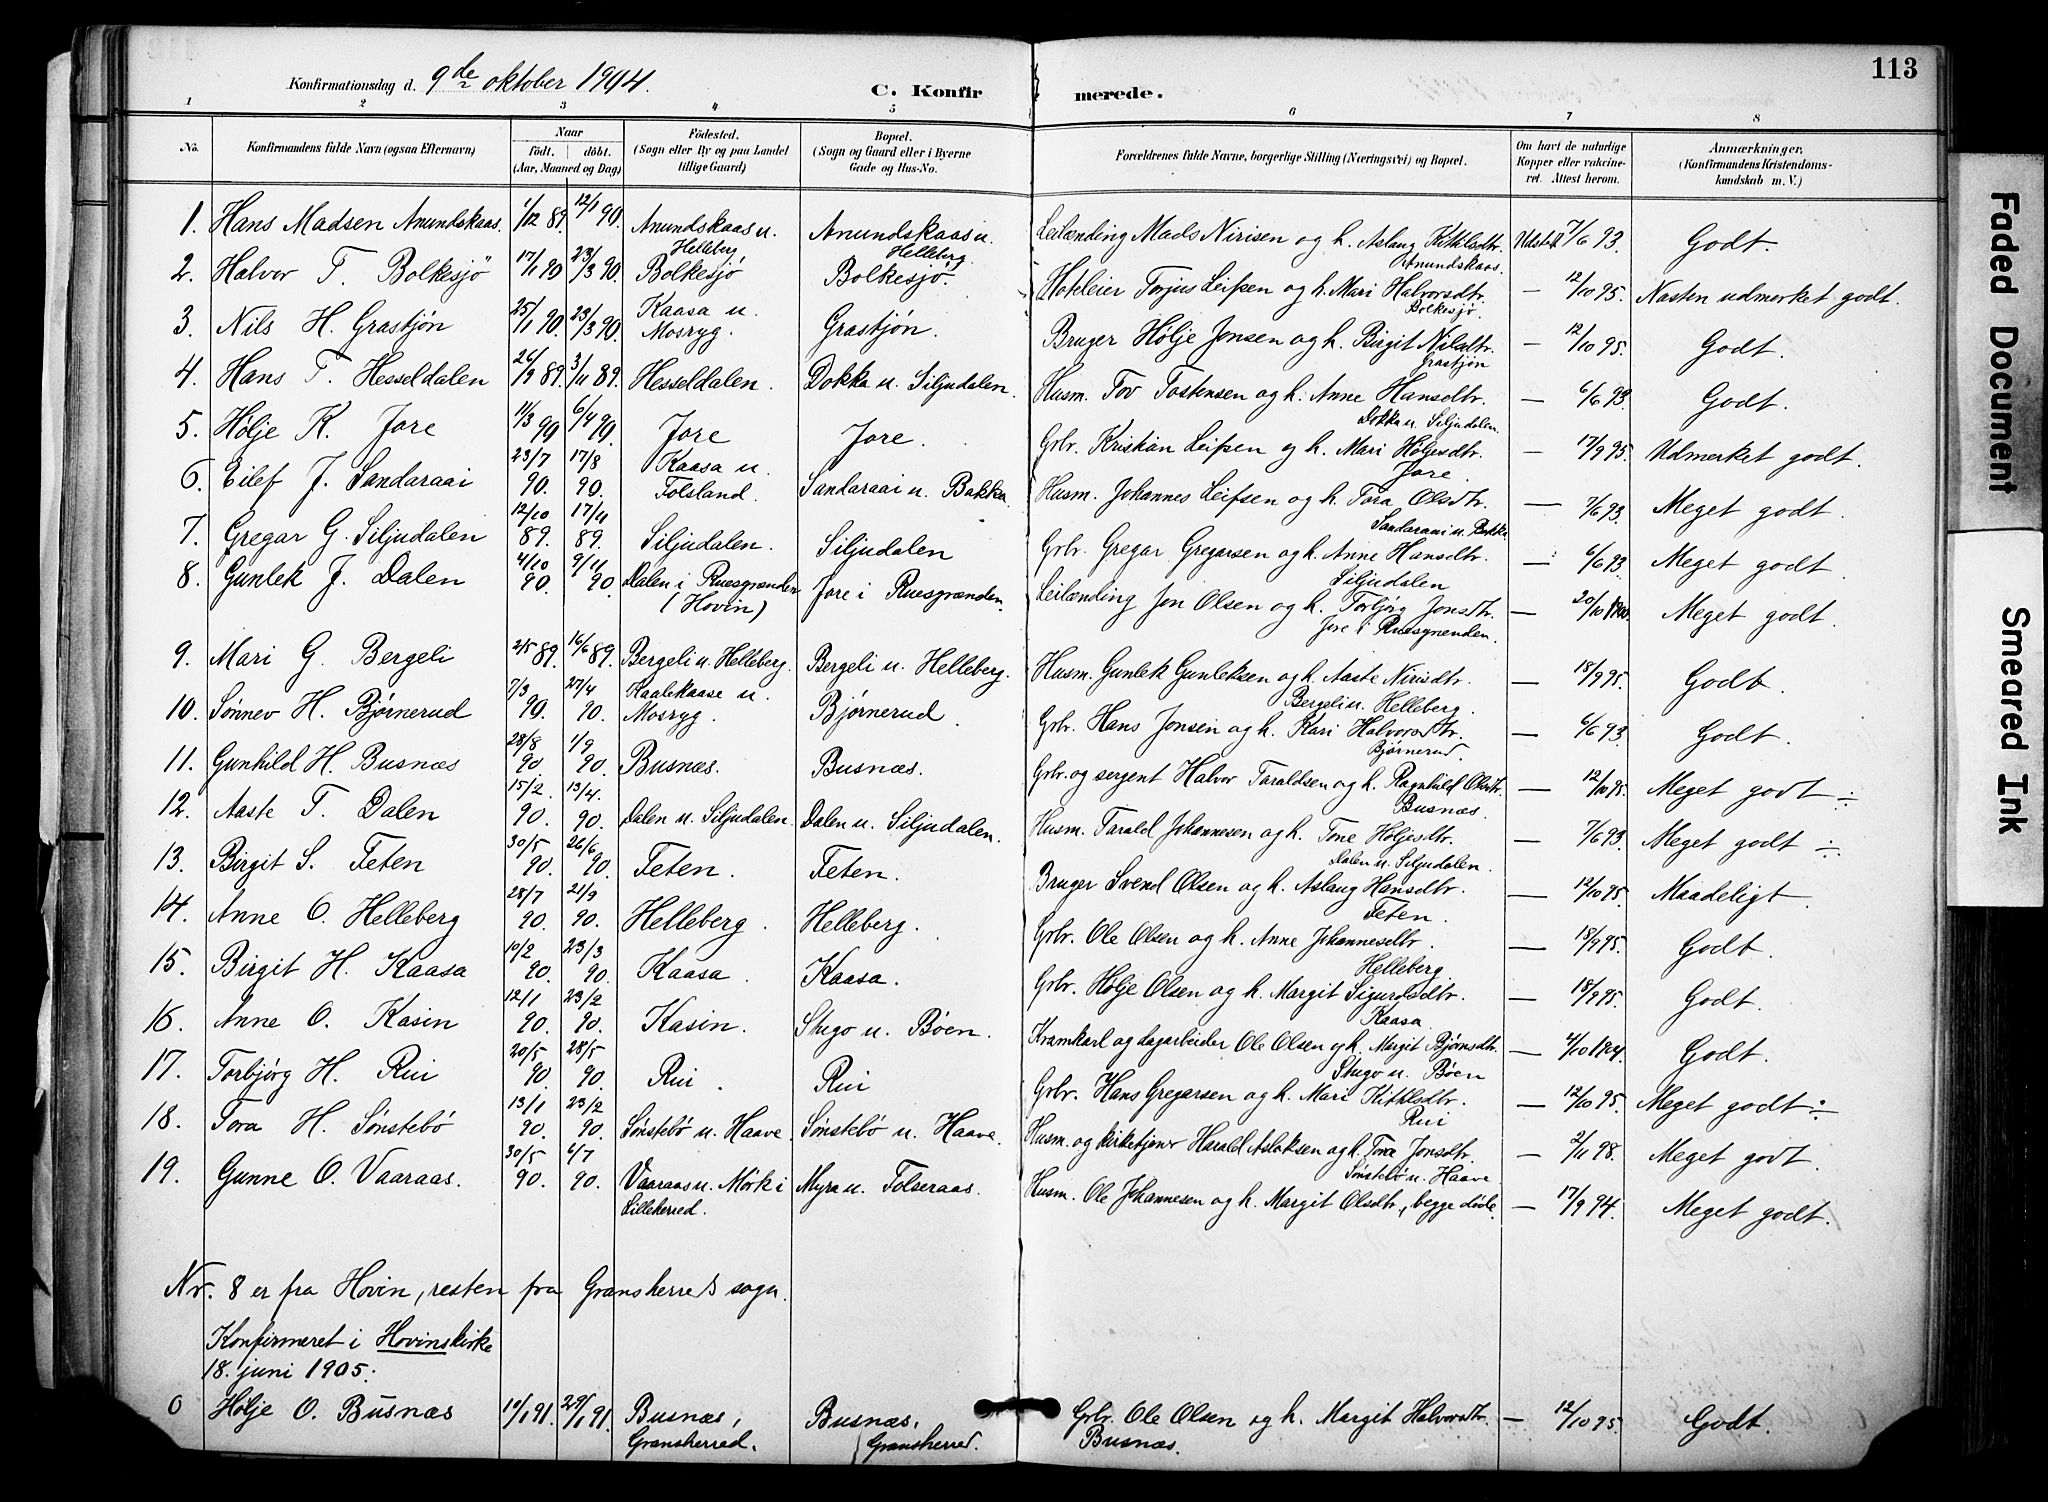 113
Konfirmationsdag d. 9de oktober 1904.
C. Konfirmerede.
1 2 3 4 5 6 7 8
No. Konfirmandens fulde Navn (ogsaa Efternavn) Naar födt. döbt. (Aar, Maaned og Dag) Födested. (Sogn eller By og paa Landet tillige Gaard) Bopæl. (Sogn og Gaard eller i Byerne Gade og Hus-No. Forældrenes fulde Navne, borgerlige Stilling (Næringsvei) og Bopæl. Om havt de naturlige Kopper eller vakcineret. Attest herom. Anmærkninger, (Konfirmandens Kristendomskundskab m. V.)
1. Hans Madsen Anundskaas. 1/12 89. 12/1 90. Anundskaas u. Helleberg Anundskaas u. Helleberg. Leilænding Mads Nirisen og h. Aslaug Kittilsdtr. Anundskaas. Udstedt 7/6 93. Godt.
2. Halvor T. Bolkesjö 17/1 90 23/3 90. Bolkesjö Bolkesjö. Hoteleier Torjus Leifsen og h. Mari Halvorsdtr. Bolkesjø. — 12/10 95. Næsten udmerket godt.
3. Nils H. Grastjøn 25/1 90. 23/3 90. Kaasa u. Mosryg. Grastjøn. Bruger Hølje Jonsen og h. Birgit Nilsdtr. Grastjøn — 12/10 95. Godt.
4. Hans T. Hesseldalen 26/9 89. 3/11 89. Hesseldalen. Dokka u. Siljudalen. Husm. Tov Tostensen og h. Anne Hansdtr. Dokka u. Siljudalen. — 6/6 93. Godt.
5. Hølje K. Jore 11/3 90 6/4 90. Jore Jore. Grbr. Kristian Leifsen og h. Mari Høljesdtr. Jore — 17/9 95. Udmerket godt.
6. Eilef J. Sandaraai 23/7 90. 17/8 90. Kaasa u. Folsland. Sandaraai u. Bakka. Husm. Johannes Leifsen og h. Tara Olsdtr. Sandaraai u. Bakka — 7/6 93. Meget godt.
7. Gregar G. Siljudalen 12/10 89. 17/11 89. Siljudalen. Siljudalen Grbr. Gregar Gregarsen og h. Anne Hansdtr. Siljudalen — 6/6 93. Meget godt.
8. Gunlek J. Dalen 4/10 90. 9/11 90. Dalen i Ruesgrænden (Hovin) Jore i Ruesgrænden. Leilænding Jon Olsen og h. Torbjørg Jonsdtr. Jore i Ruesgrenden. — 20/10 1900. Meget godt.
9. Mari G. Bergeli 2/5 89. 16/6 89. Bergeli u. Helleberg. Bergeli u. Helleberg. Husm. Gunlek Gunleksen og h. Aaste Nirisdtr. Bergeli u. Helleberg. — 18/9 95. Godt.
10. Sønnev H. Bjørnerud 7/3 90. 27/4 90. Haalekaase u. Mosryg. Bjørnerud. Grbr. Hans Jonsen og h. Kari Halvorsdtr. Bjørnerud. — 6/6 93. Godt.
11. Gunhild H. Busnæs 28/8 90 1/9 90. Busnæs. Busnæs. Grbr. og sergent Halvor Taraldsen og h. Ragnhild Olsdtr. Busnæs. — 12/10 95. Meget godt ÷
12. Aaste T. Dalen 15/2. 90. 13/4. 90. Dalen u. Siljudalen. Dalen u. Siljudalen. Husm. Tarald Johannesen og h. Tone Høljesdtr. Dalen u. Siljudalen. — 7/6 93. Meget godt ÷.
13. Birgit S. Feten 30/5 90. 26/6 90. Feten. Feten. Bruger Svend Olsen og h. Aslaug Hansdtr. Feten. — 12/10 95. Maadeligt.
14. Anne O. Helleberg 28/7 90. 21/9 90. Helleberg. Helleberg. Grbr. Ole Olsen og h. Anne Johannesdtr. Helleberg. — 18/9 95. Godt.
15. Birgit H. Kaasa 10/2 90. 23/3 90. Kaasa. Kaasa. Grbr. Hølje Olsen og h. Margit Sigurdsdtr. Kaasa. — 18/9 95. Godt.
16. Anne O. Kasin 12/1 90. 23/2 90. Kasin. Stugo u. Bøen. Kramkarl og dagarbeider Ole Olsen og h. Margit Bjørnsdtr. Stugo u. Bøen — /10 1904. Godt.
17. Torbjørg H. Rui 20/5 90. 28/5 90. Rui. Rui Grbr. Hans Gregarsen og h. Mari Kittilsdtr. Rui — 12/10 95. Meget godt ÷
18. Tora H. Sønstebö 13/1 90. 23/2 90. Sønstebö u. Haave. Sønstebö u. Haave. Husm. og kirketjener Harald Aslaksen og h. Tora Jonsdtr. Sønstebø u. Haave — 2/11 98. Meget godt.
19. Gunne O. Vaaraas. 30/5 90. 6/7 90. Vaaraas u. Mørk i Lilleherred. Myra u. Folseraas. Husm. Ole Johannesen og h. Margit Olsdtr., begge døde. — 17/9 94. Meget godt.
Nr. 8 er fra Hovin, resten fra Gransherreds sogn.
Konfirmeret i Hovinskirke
18. juni 1905:
0 Hølje O. Busnæs 10/1 91. 29/1 91. Busnæs, Gransherred. Busnæs, Gransherred. Grbr. Ole Olsen og h. Margit Halvorsdtr. Busnæs. — 12/10 95. Godt.
Faded Document
Smeared Ink